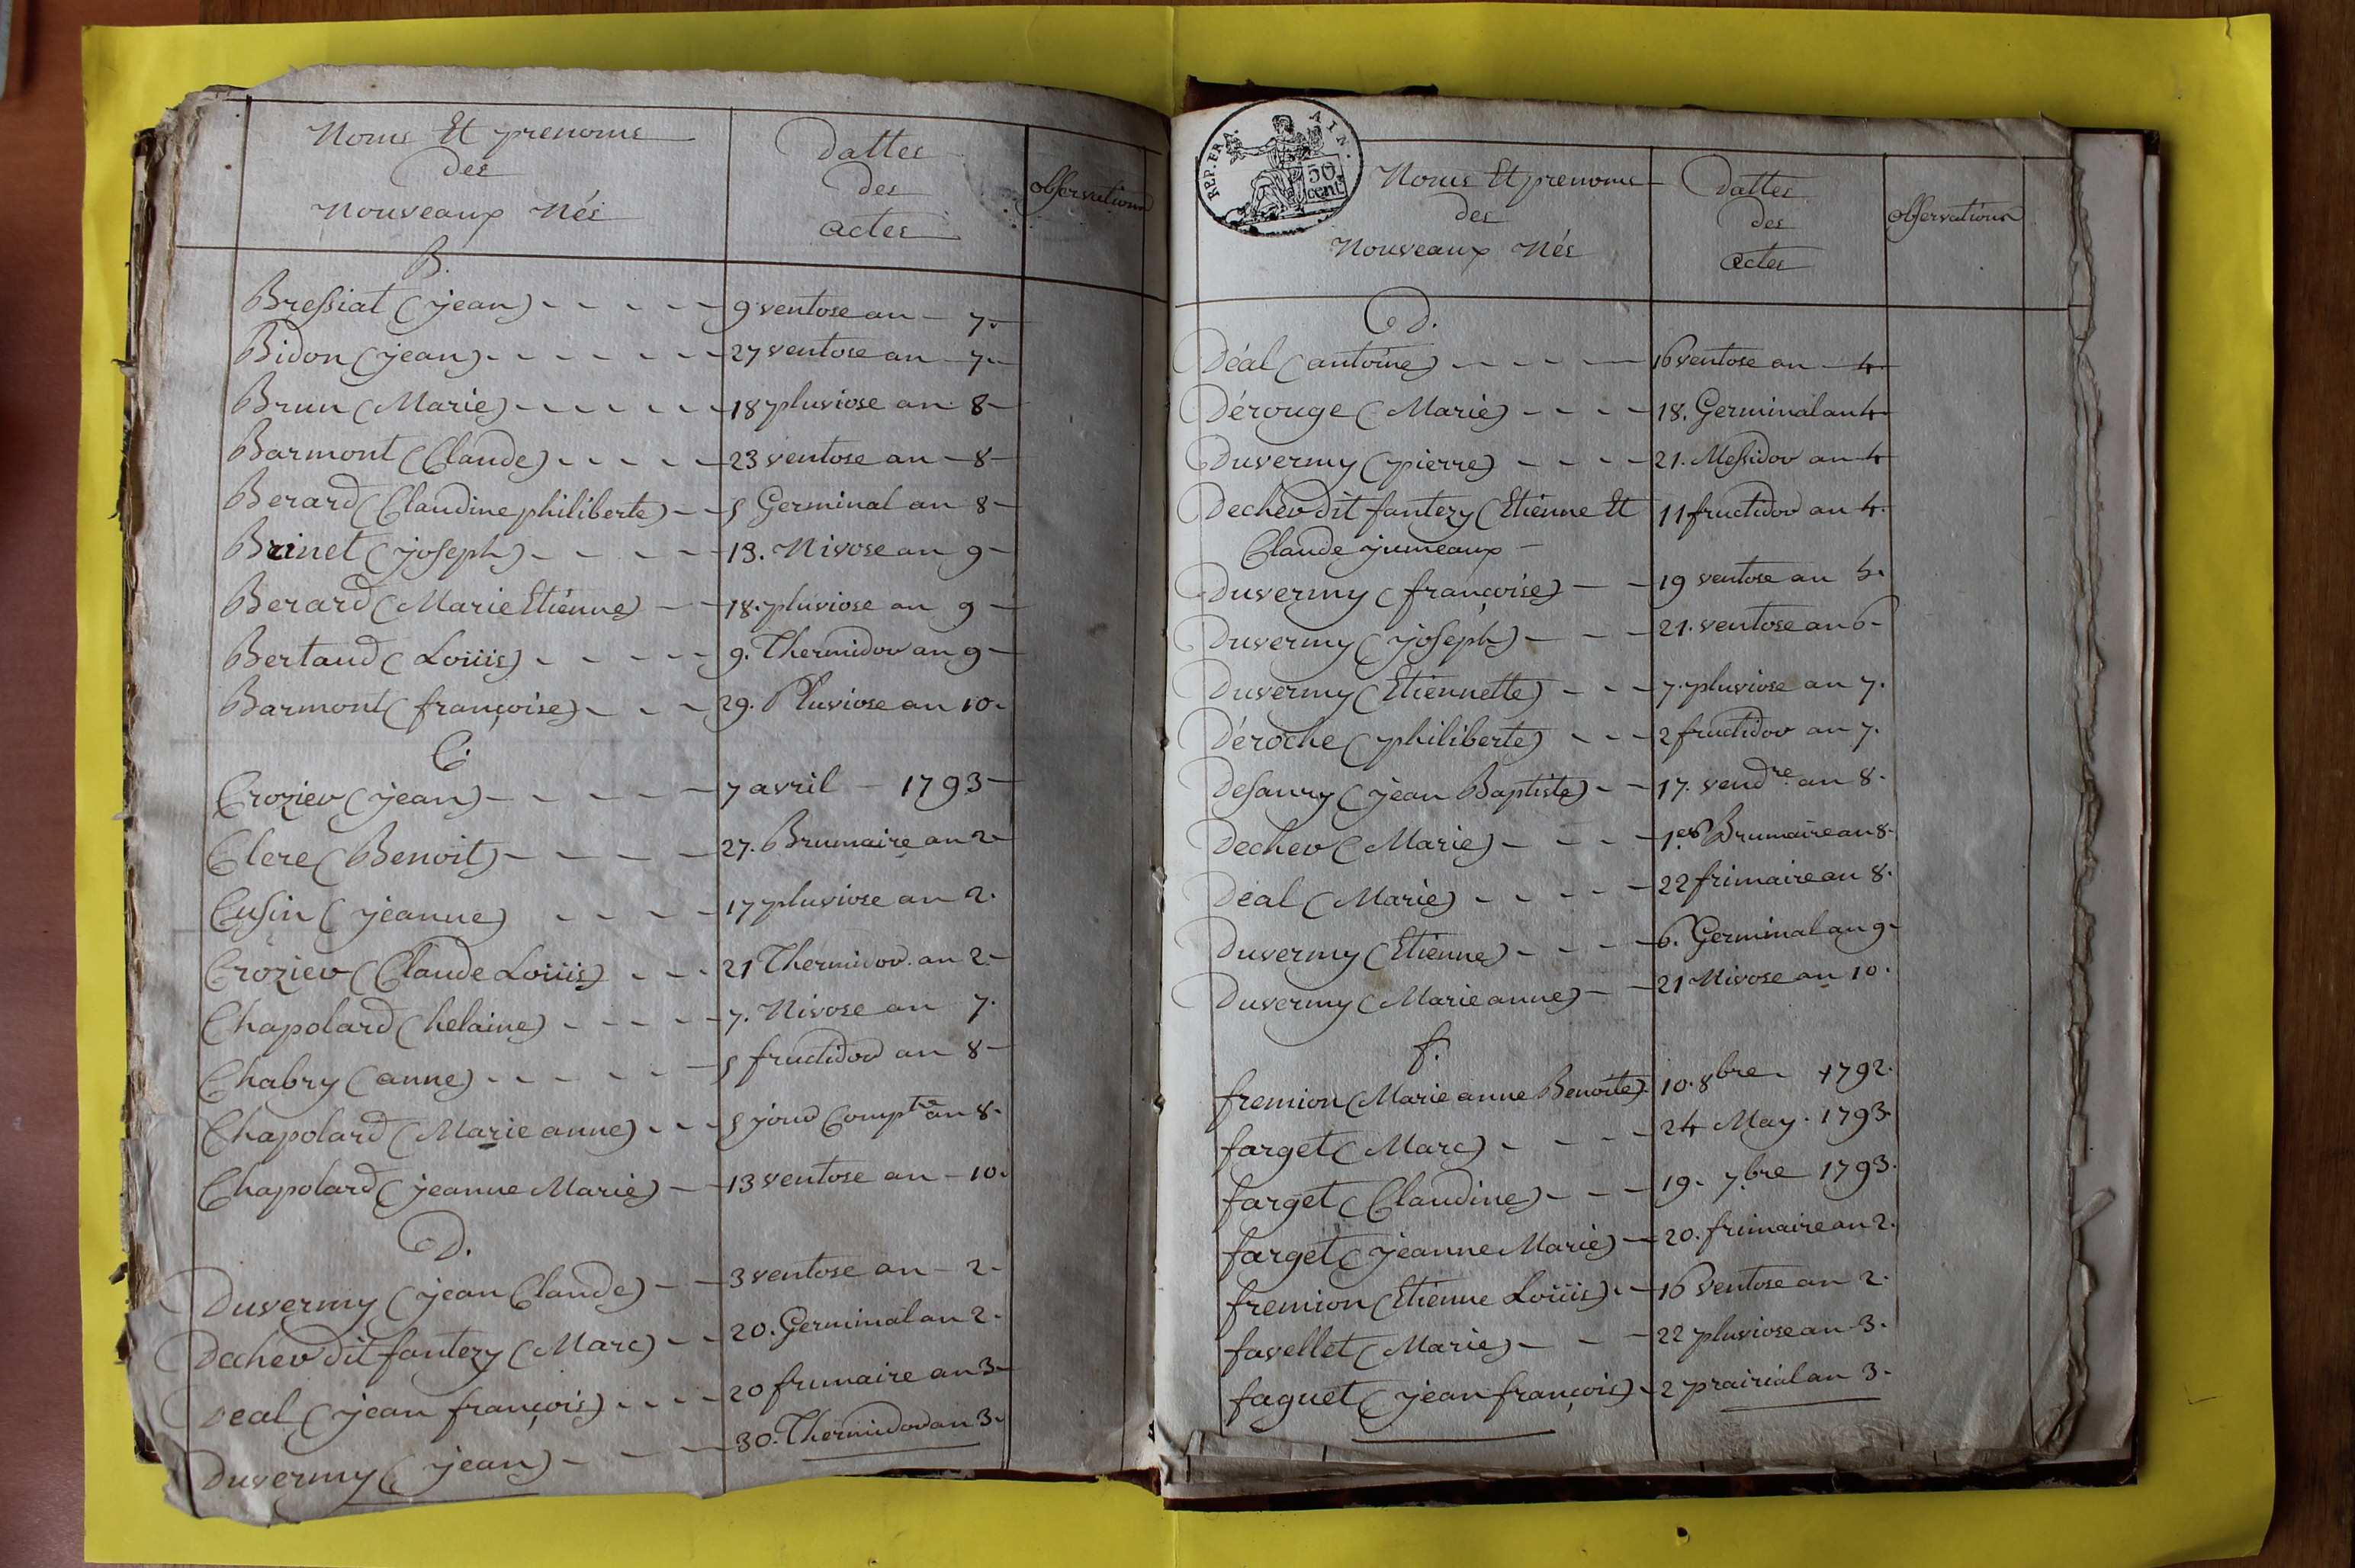 Noms Et prenoms
des
Nouveaux Nés
Dattes
des
actes
observations
B.
Bressiat (jean) - - - - - 9 ventose an - 7.
Bidon (jean) - - - - - - 27 ventose an - 7.
Brun (Marie) - - - - - - 18 pluviose an 8
Barmont (Claude) - - - - - 23 ventose an - 8
Berard (Claudine philiberte) - - 5 Germinal an 8
Brinet (joseph) - - - - 13. Nivose an 9
Berard (Marie Etienne) - - 18. pluviose an 9
Bertaud (Loüis) - - - - - 9. Thermidor an 9
Barmont (françoise) - - - 29. Pluviose an 10.
C.
Crozier (jean) - - - - - 7 avril - 1793
Clere (Benoit) - - - - 27. Brumaire an 2
Cusin (jeanne) - - - - 17 pluviose an 2.
Crozier (Claude Loüis) - - - 21 Thermidor an 2.
Chapolard (helaine) - - - - 7. Nivose an 7.
Chabry (anne) - - - - - - 5 fructidor an 8
Chapolard (Marie anne) - - - 5 jour Compre an 8.
Chapolard (jeanne Marie) - - 13 ventose an - 10.
D.
Duvermy (jean Claude) - - 3 ventose an - 2
Decher dit fantezy (Marc) - - 20. Germinal an 2.
Deal (jean françois) - - - - 20 frimaire an 3
Duvermy (jean) - - - 30. Thermidor an 3.
REP. FRA. AIN.
50 cent.
Noms Et prenoms
des
Nouveaux Nés
Dattes
des
actes
observations
D.
Déal (antoine) - - - - - 16 ventose an - 4.
Dérouge (Marie) - - - - 18. Germinal an 4
Duvermy (pierre) - - - - 21. Messidor an 4
Decher dit fantezy (Etienne Et 11 fructidor an 4.
Claude jumeaux -
Duvermy (françoise) - - 19 ventose an 5.
Duvermy (joseph) - - - 21. ventose an 6
Duvermy (Etiennette) - - - 7. pluviose an 7.
Déroche (philiberte) - - - 2 fructidor an 7.
Desaury (jean Baptiste) - - 17. vendre an 8.
Decher (Marie) - - - - 1er Brumaire an 8.
Déal (Marie) - - - - - 22 frimaire an 8.
Duvermy (Etienne) - - - - 6. Germinal an 9
Duvermy (Marie anne) - - 21 Nivose an 10.
f.
fremion (Marie anne Benoite) 10. 8bre 1792.
farget (Marc) - - - - 24 May. 1793
farget (Claudine) - - - 19. 7bre 1793.
farget (jeanne Marie) - 20. frimaire an 2.
fremion (Etienne Loüis) - - 16 Ventose an 2.
favellet (Marie) - - - 22 pluviose an 3.
faguet (jean françois) - 2 prairial an 3.